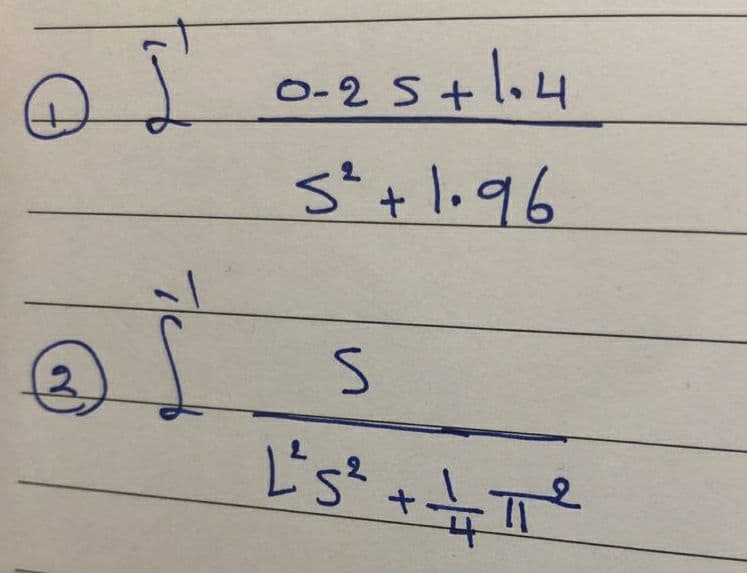 ① ℒ⁻¹ 0.2 s + 1.4
s² + 1.96
② ℒ⁻¹ s
L²s² + 1/4 π²